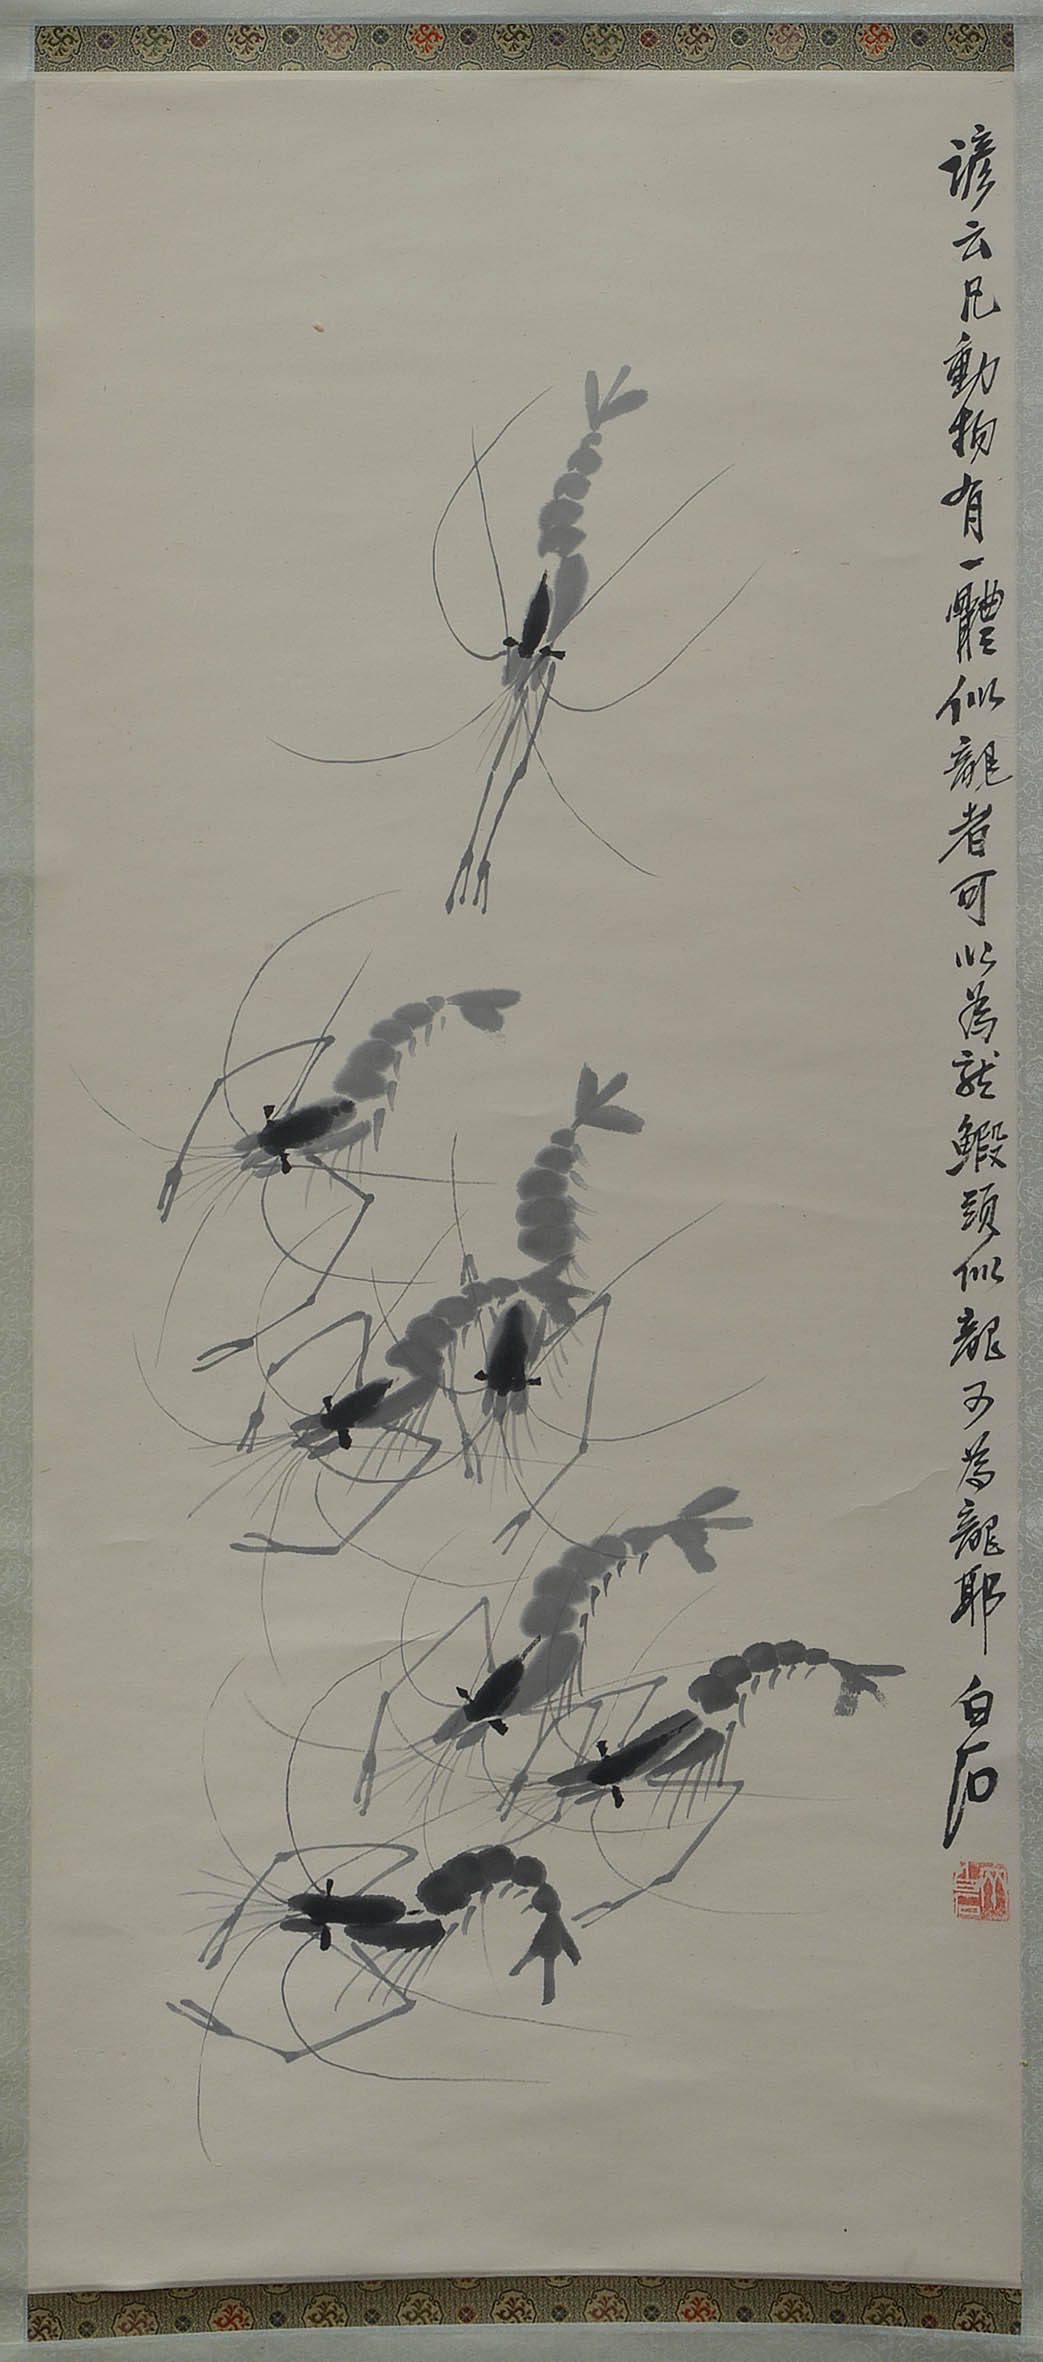 諺云凡動物有一體似龍者可以為龍鰕頭似龍可為龍耶
白石